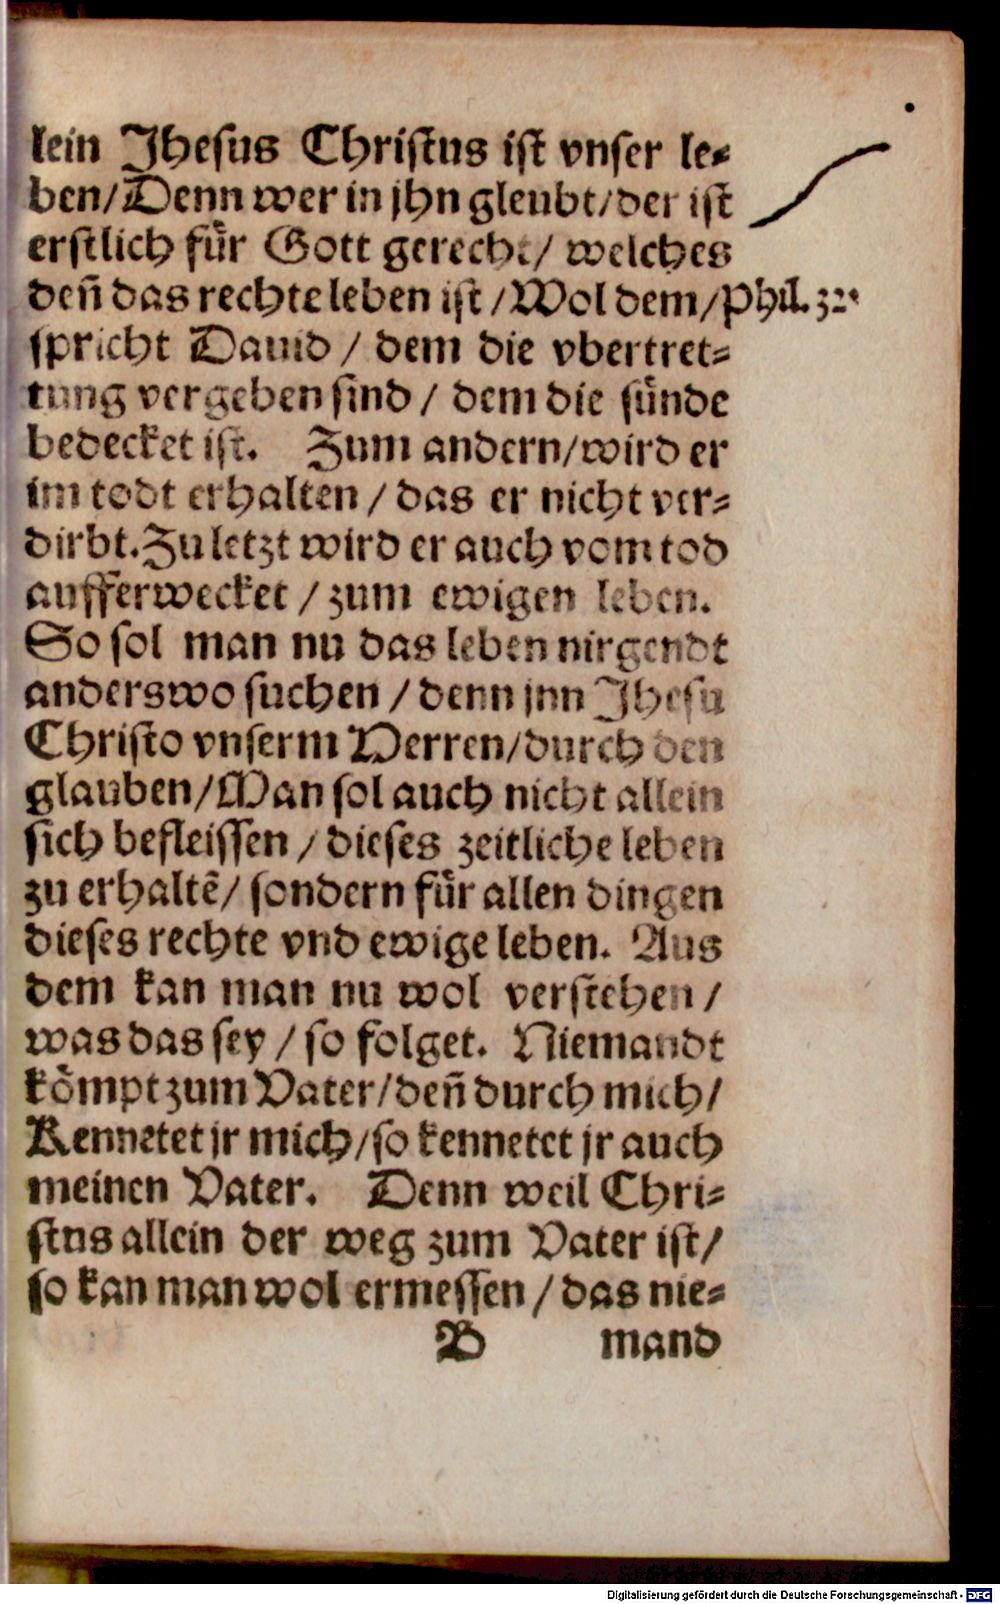 lein Jhesus Christus ist vnser le⸗
ben/Denn wer in jhn gleubt/der ist
erstlich fuͤr Gott gerecht/ welches
deñ das rechte leben ist /Wol dem/ Phil. 32.
spricht Dauid / dem die vbertret⸗
tung vergeben sind / dem die suͤnde
bedecket ist. Zum andern/wird er
im todt erhalten / das er nicht ver⸗
dirbt. Zu letzt wird er auch vom tod
aufferwecket / zum ewigen leben.
So sol man nu das leben nirgendt
anderswo suchen / denn jnn Jhesu
Christo vnserm Herren/durch den
glauben/Man sol auch nicht allein
sich befleissen / dieses zeitliche leben
zu erhaltẽ/ sondern fuͤr allen dingen
dieses rechte vnd ewige leben. Aus
dem kan man nu wol verstehen /
was das sey / so folget. Niemandt
koͤmpt zum Vater/deñ durch mich/
Kennetet jr mich/so kennetet jr auch
meinen Vater. Denn weil Chri⸗
stus allein der weg zum Vater ist/
so kan man wol ermessen / das nie⸗
B mand
Digitalisierung gefördert durch die Deutsche Forschungsgemeinschaft - DFG